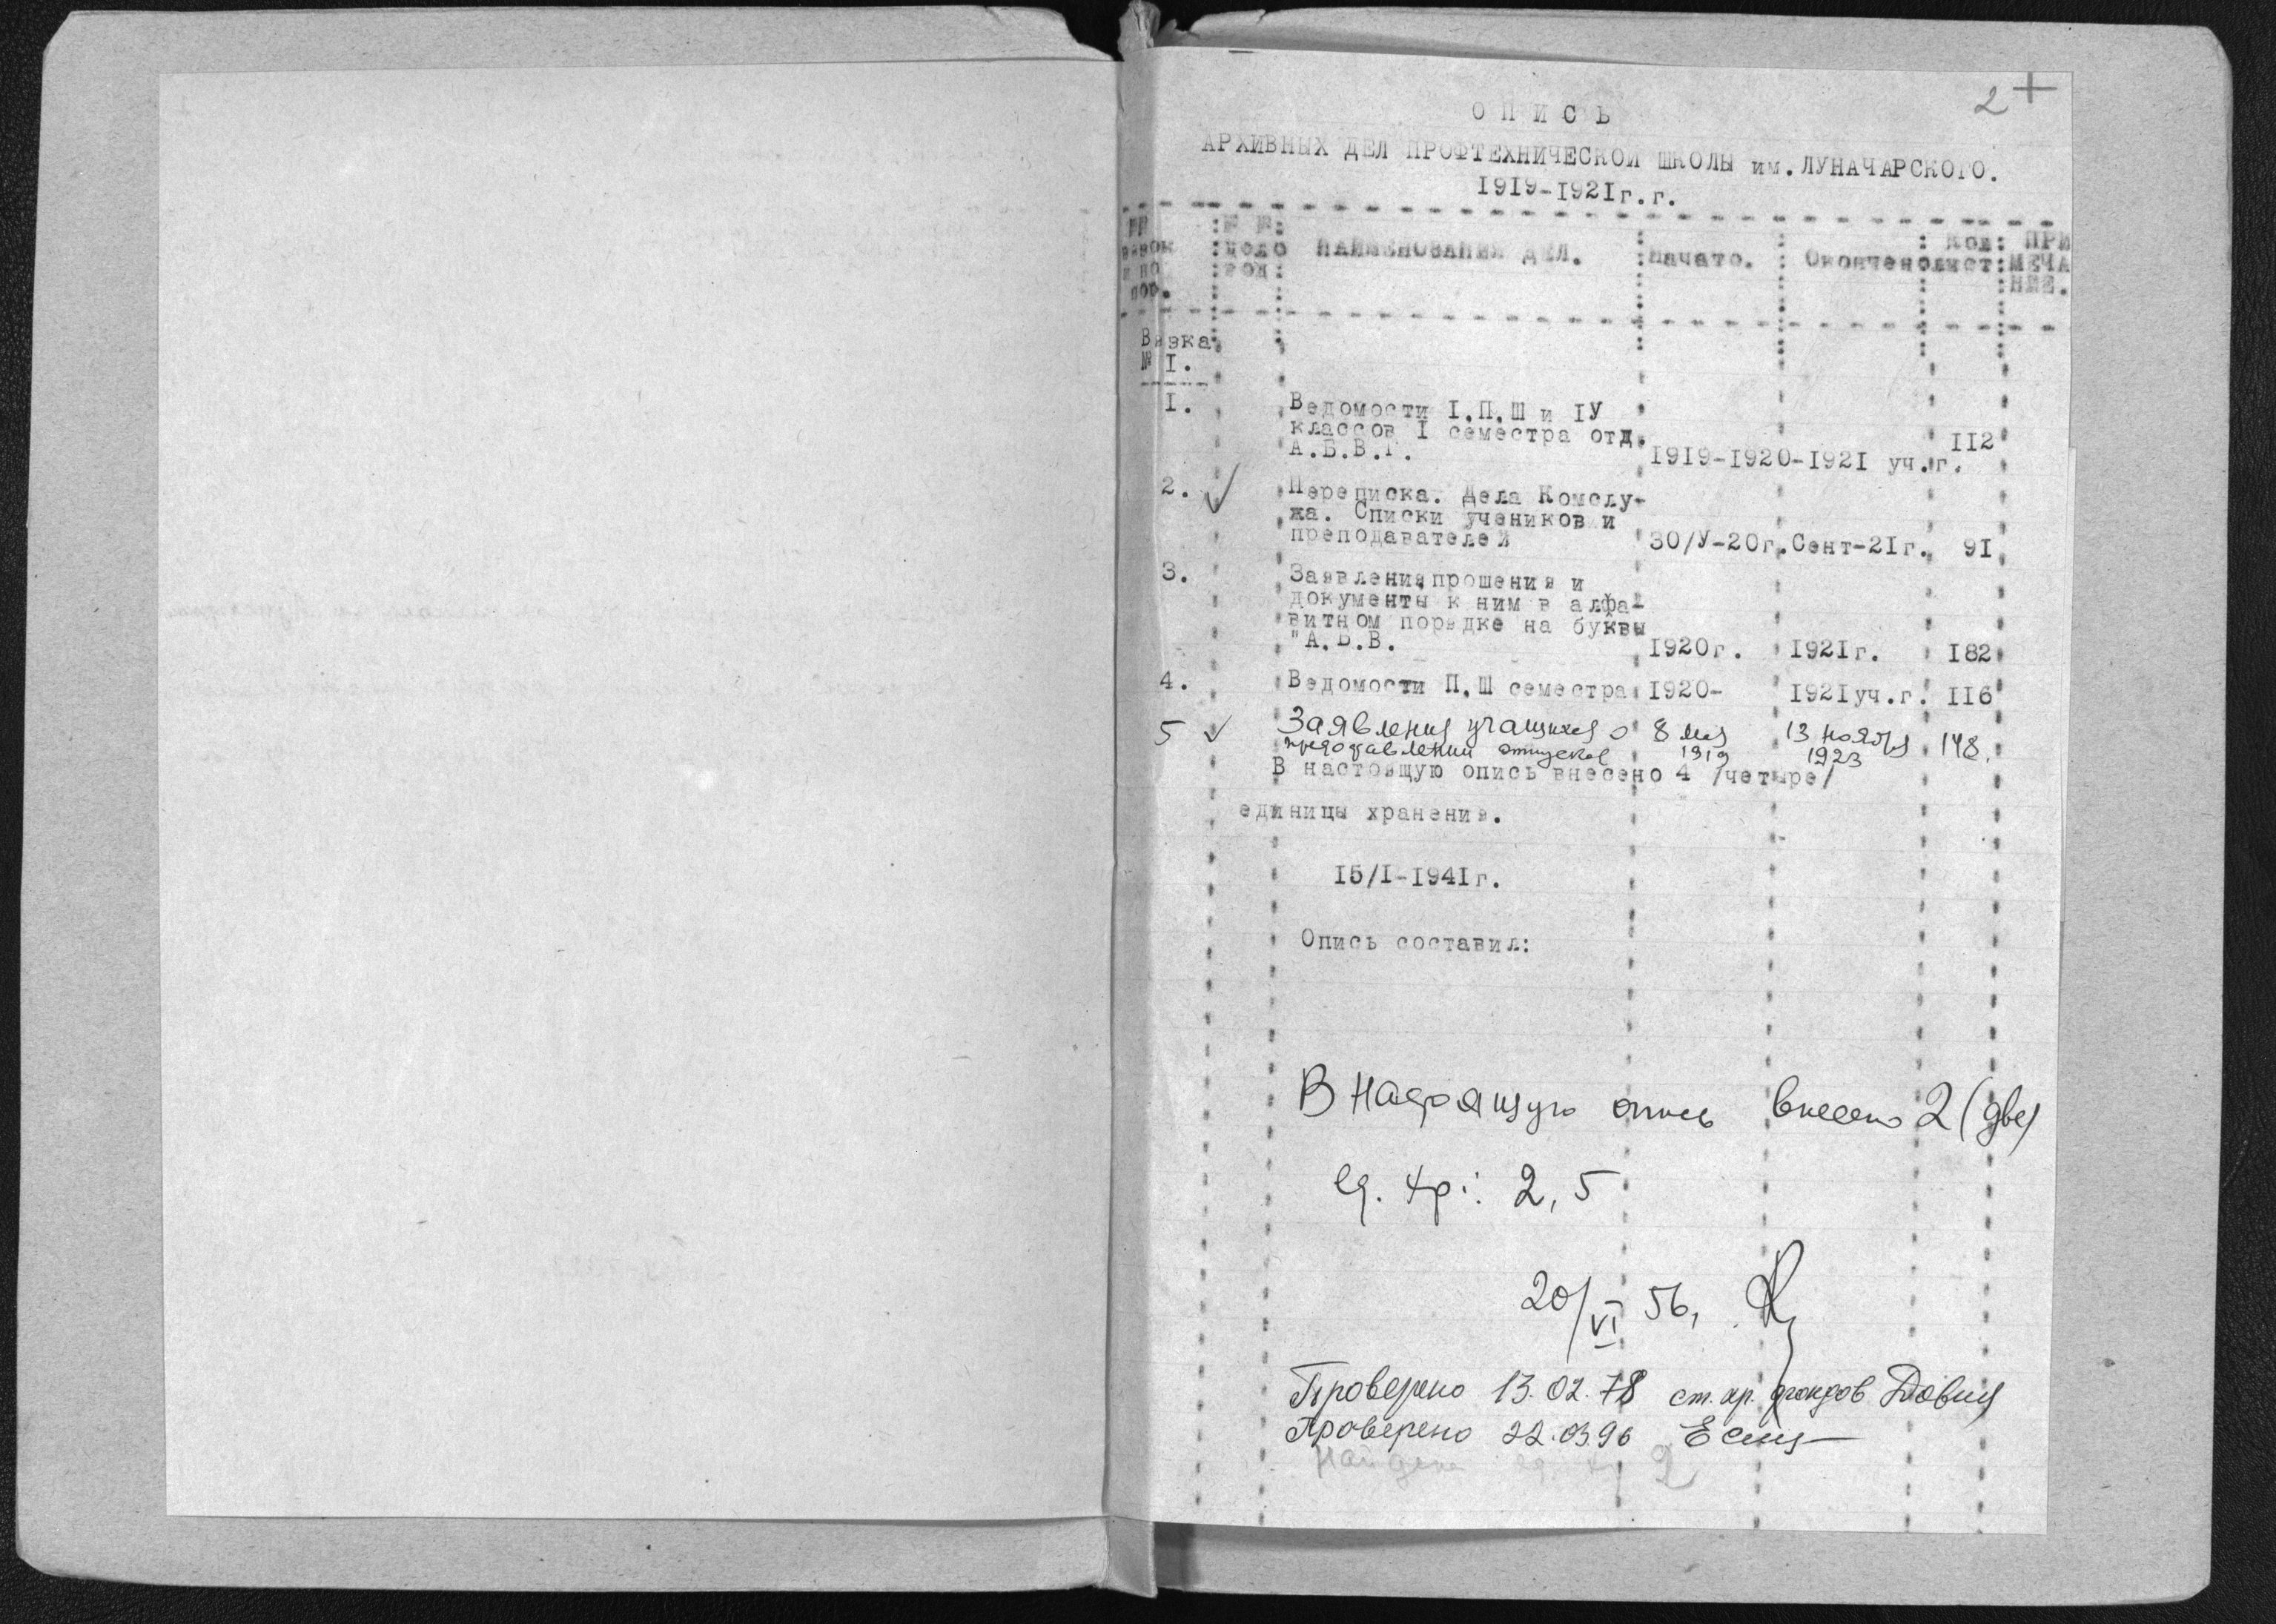 2 +
ОПИСЬ
АРХИВНЫХ ДЕЛ ПРОФТЕХНИЧЕСКОЙ ШКОЛЫ им. ЛУНАЧАРСКОГО.
1919-1921г.г.
№№ вязок и по пор. : № № : НАИМЕНОВАНИЯ ДЕЛ. : Начато. : Окончено : Кол. лист : ПРИМЕЧАНИЕ.
Вязка
№ I.
I. Ведомости I,П,Ш и IУ
классов I семестра отд.
А.Б.В.Г. 1919-1920-1921 уч.г. 112
2. ✓ Переписка. Дела Комслу-
жа. Списки учеников и
преподавателей 30/У-20г. Сент-21г. 91
3. Заявления прошения и
документы к ним в алфа-
витном порядке на буквы
"А.Б.В. 1920г. 1921г. 182
4. Ведомости П,Ш семестра 1920- 1921уч.г. 116
5 ✓ Заявления учащихся о 8 мая 13 ноября 148.
предоставлении отпусков 1919 1923
В настоящую опись внесено 4 /четыре/
единицы хранения.
15/I-1941г.
Опись составил:
В настоящую опись внесено 2 (две)
ед. хр.: 2, 5
20/VI 56,
Проверено 13.02.78 ст. хр. фондов
Проверено 22.03.96
Найдена ед. 2